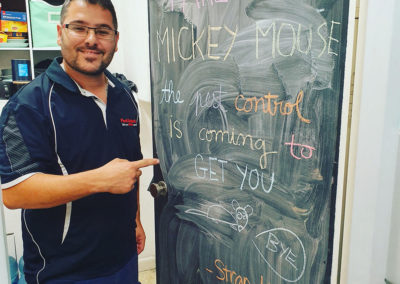 MICKEY MOUSE
the pest control
IS coming to
GET YOU
BYE